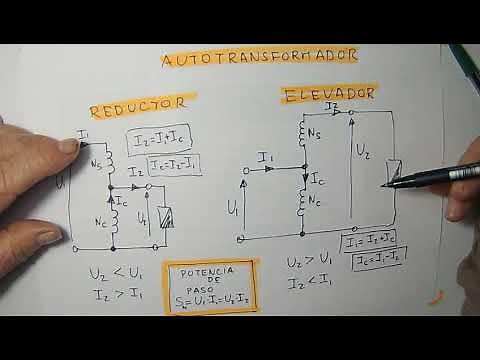 AUTOTRANSFORMADOR
REDUCTOR
I1
NS
I2=I1+IC
IC=I2-I1
I2
IC
NC
U2
U2 < U1
I2 > I1
POTENCIA
DE
PASO
Sn=U1·I1=U2·I2
ELEVADOR
I2
NS
I1
U2
IC
U1
NC
I1=I2+IC
IC=I1-I2
U2 > U1
I2 < I1